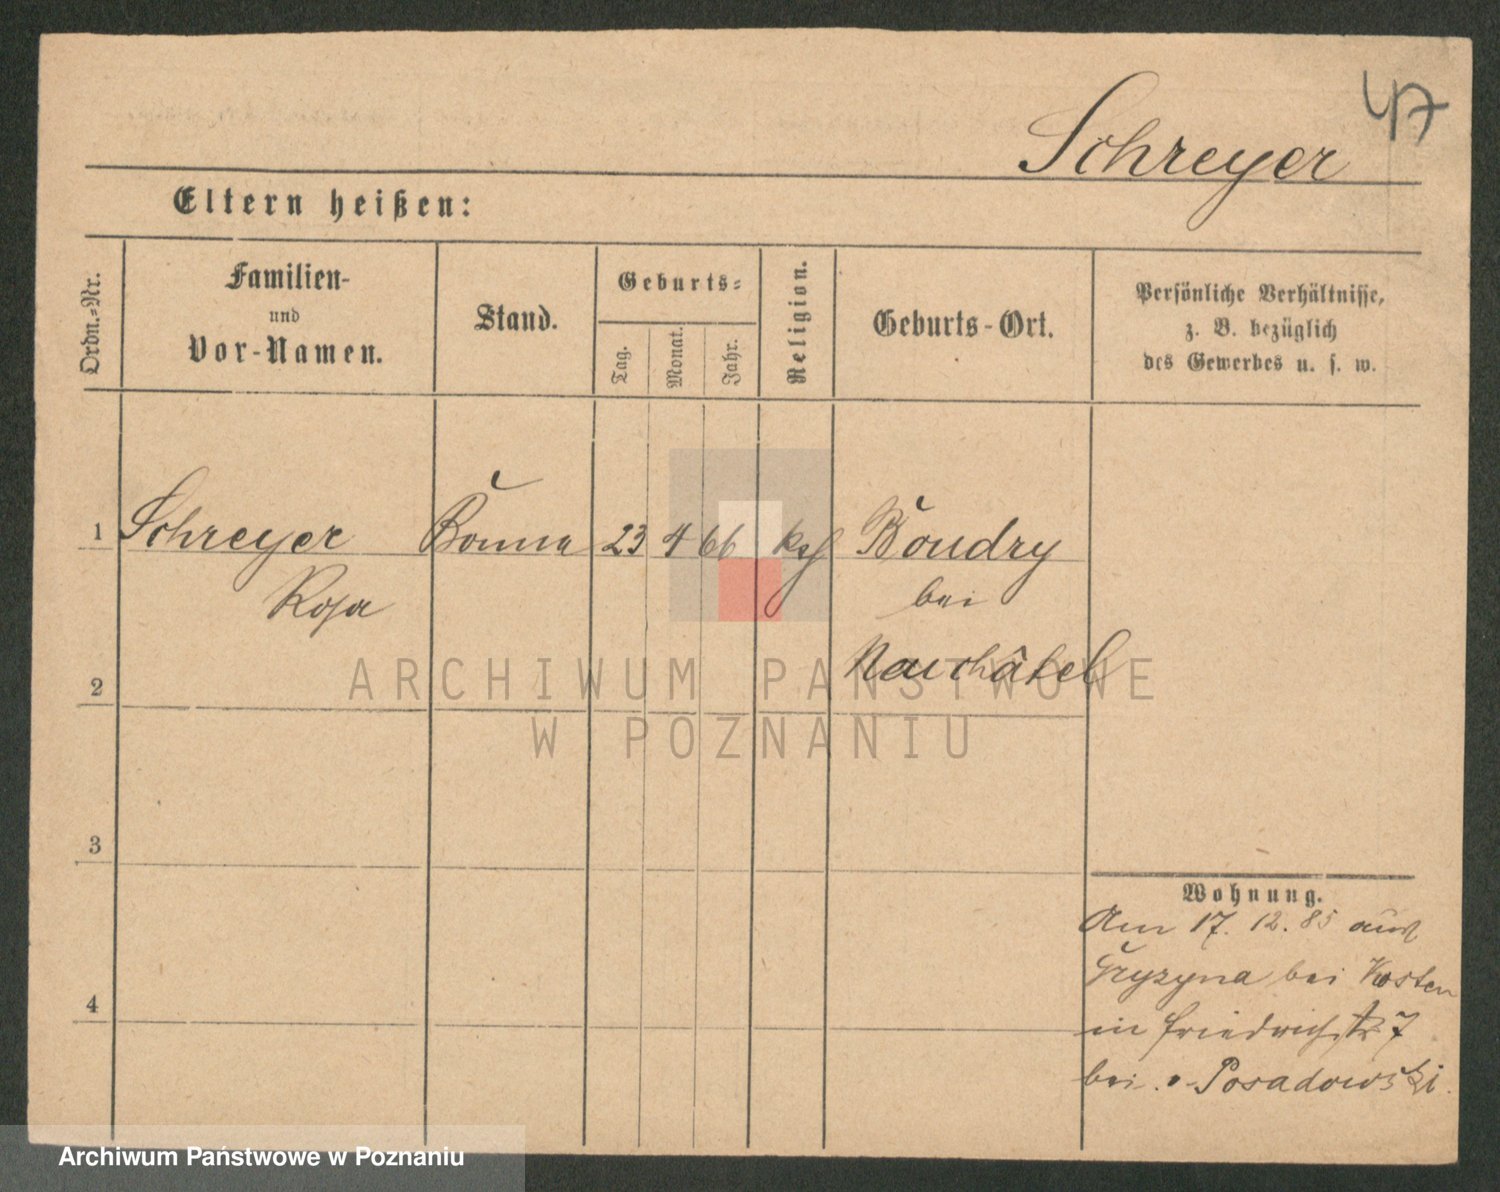 47
Schreyer
Eltern heißen:
Ordn.-Nr.
Familien-
und
Vor-Namen.
Stand.
Geburts-
Tag.
Monat.
Jahr.
Religion.
Geburts-Ort.
Persönliche Verhältnisse,
z. B. bezüglich
des Gewerbes u. s. w.
1 Schreyer Bonna 23 4 66 Boudry
Rosa bei
Neuchâtel
2
ARCHIWUM PAŃSTWOWE
W POZNANIU
3
4
Wohnung.
Am 17. 12. 85 aus
Gryzyna bei Kosten
in Friedrichstr 7
bei v. Posadowski.
Archiwum Państwowe w Poznaniu